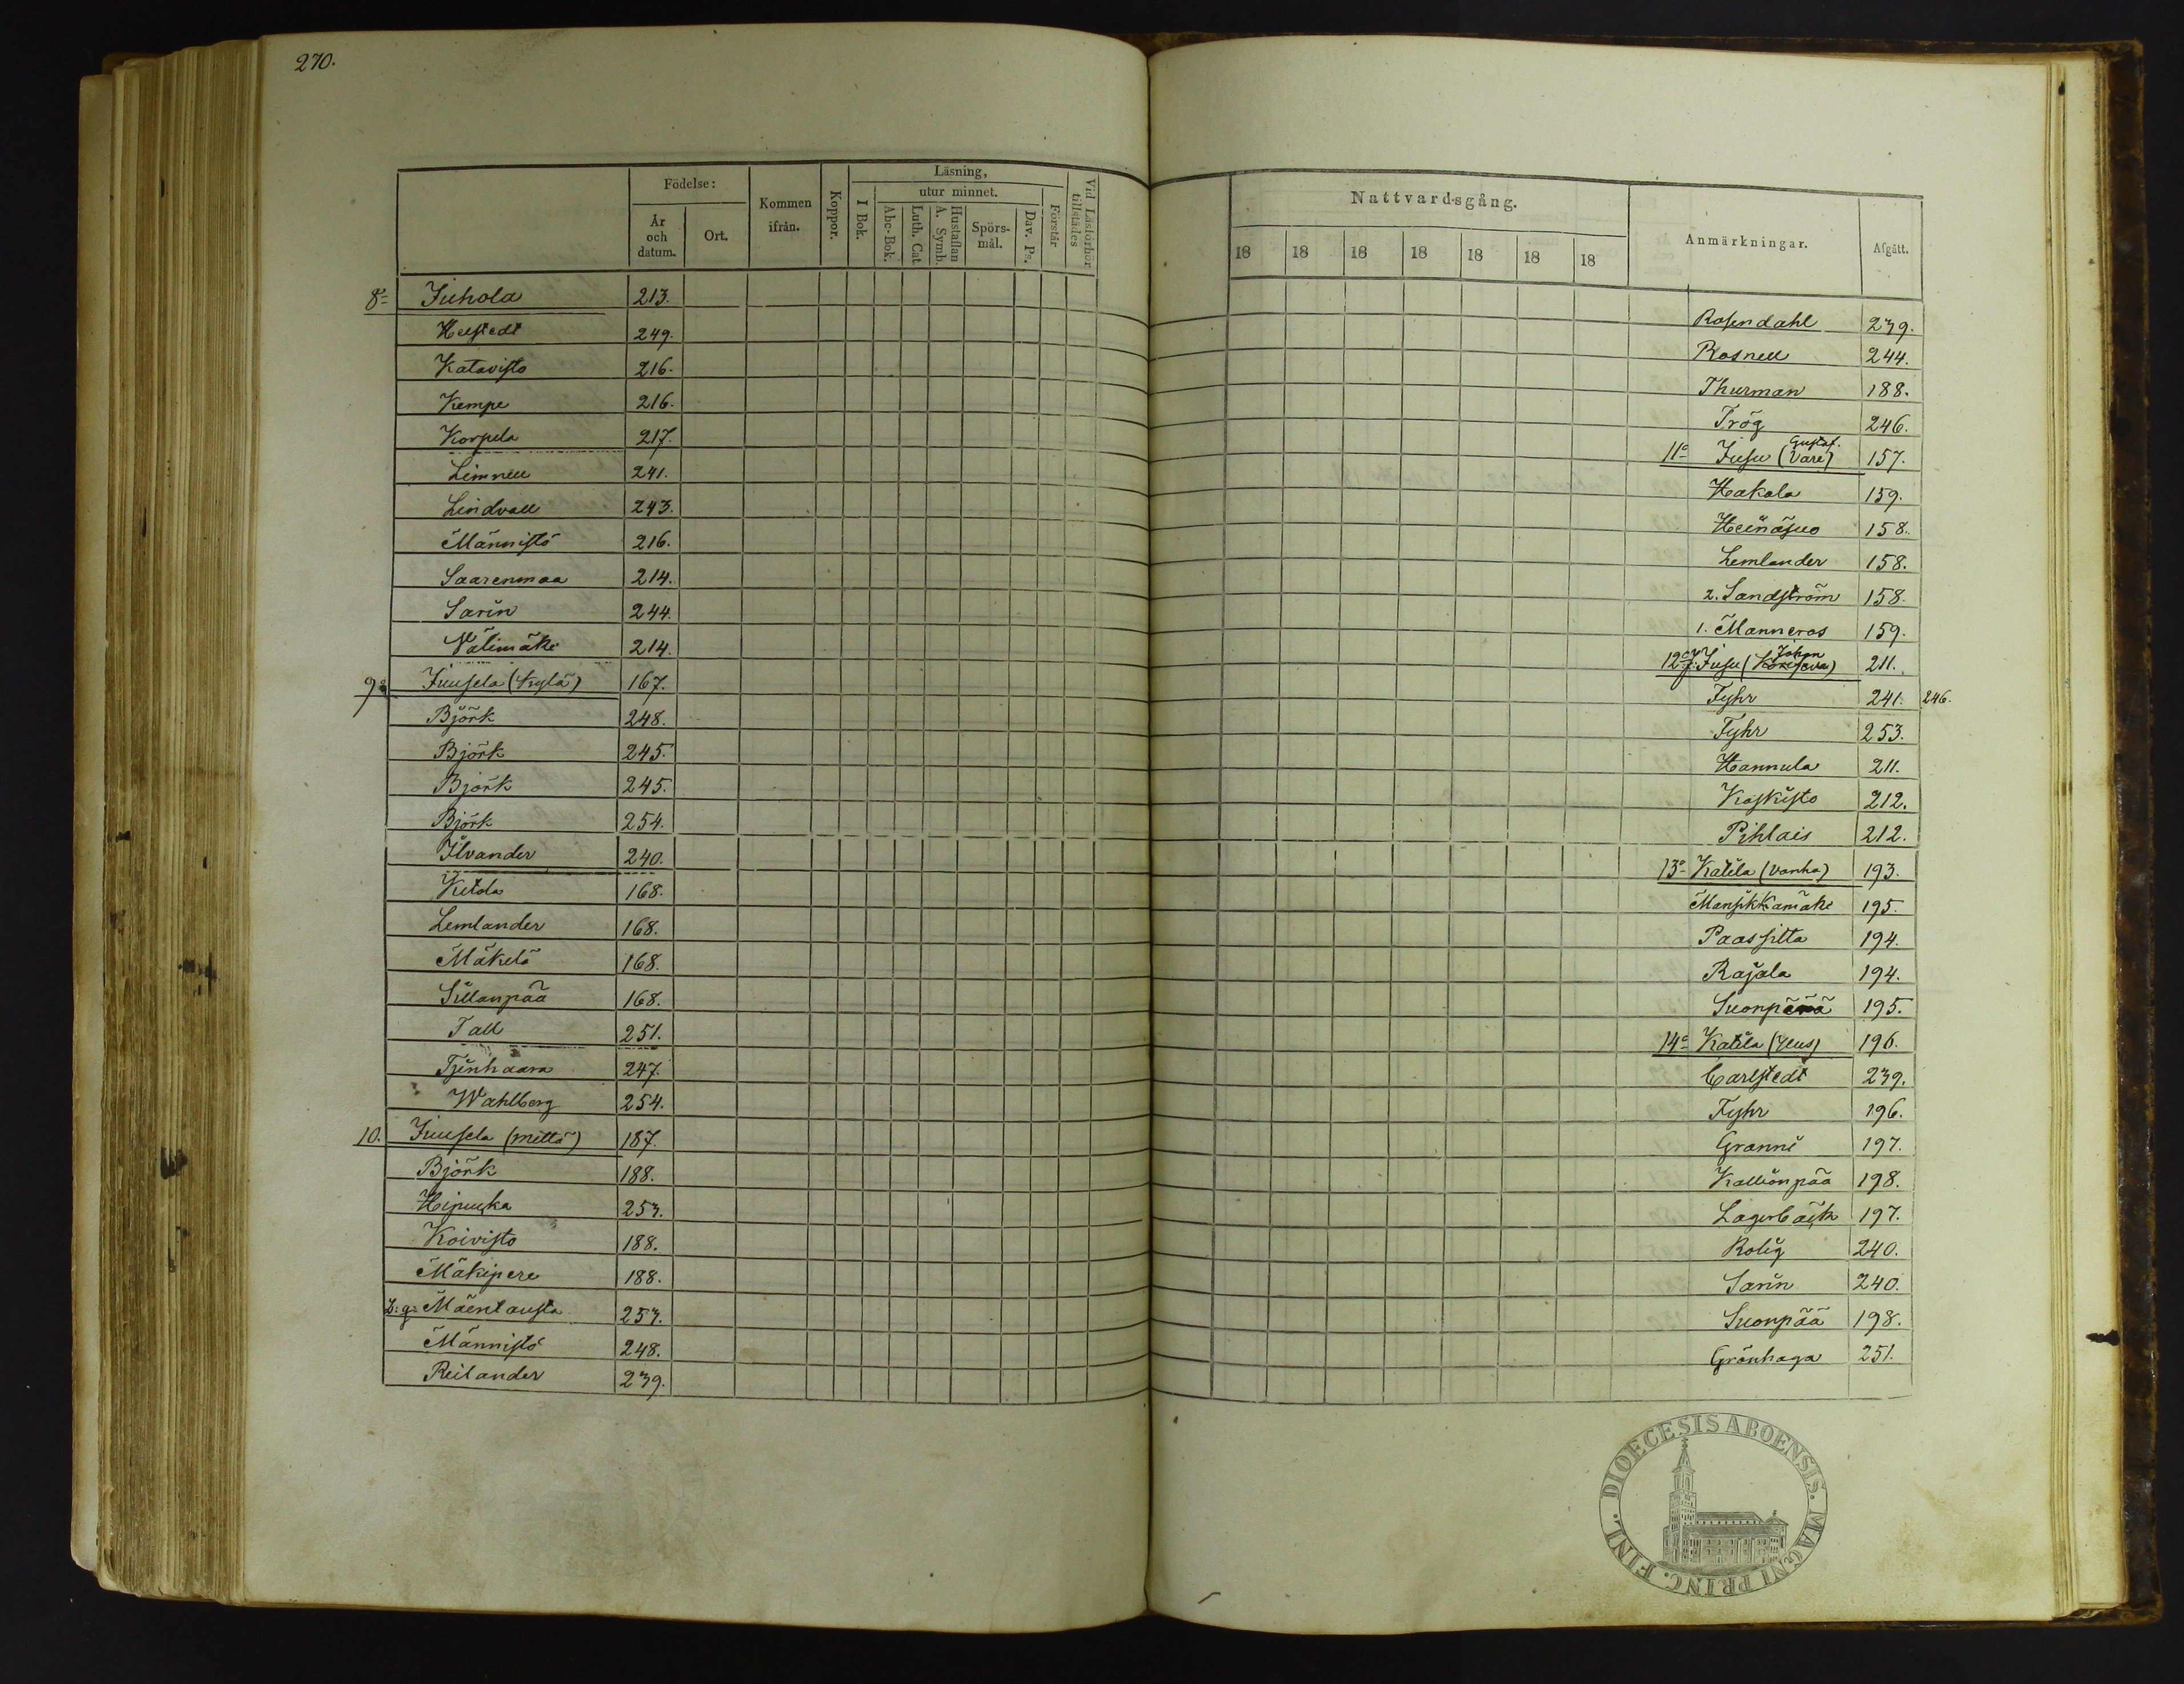 270.
Födelse:
År och datum.
Ort.
Kommen ifrån.
Koppor.
Läsning,
I Bok.
utur minnet.
Abc-Bok.
Luth. Cat.
Hustaflan A. Symb.
Spörs-mål.
Dav. Ps.
Förstår
Vid Läsförhör tillstädes
8= Juhola 213.
Helstedt 249.
Katavisto 216.
Kempe 216.
Korpela 217.
Limnell 241.
Lindvall 243.
Männistö 216.
Saarenmaa 214.
Sarin 244.
Välimäki 214.
9= Juusela (Kylä) 167.
Björk 248.
Björk 245.
Björk 245.
Björk 254.
Ilvander 240.
Ketola 168.
Lemlander 168.
Mäkelä 168.
Sillanpää 168.
Tall 251.
Tjenhaara 247.
Wahlberg 254.
10. Juusela (mettä) 187.
Björk 188.
Hipuska 253.
Koivisto 188.
Mäkipere 188.
Mäentausta 253.
Männistö 248.
Reilander 239.
Nattvardsgång.
18 18 18 18 18 18 18
Anmärkningar.
Afgått.
Rosendahl 239.
Rosnell 244.
Thurman 188.
Trög 246.
Gustaf.
11= Jusu (Vare) 157.
Hakala 159.
Heinäsuo 158.
Lemlander 158.
2. Sandström 158.
1. Manneros 159.
Johan
12= Jusu 211.
Fyhr 241. 246.
Fyhr 253.
Hannula 211.
Koskisto 212.
Pihlais 212.
13= Katila (Vanha) 193.
Mansikkamäki 195.
Paassilta 194.
Rajala 194.
Suonpää 195.
14= Katila (Ylus) 196.
Carlstedt 239.
Fyhr 196.
Granni 197.
Kallionpää 198.
Lagerbäck 197.
Rolig 240.
Sarin 240.
Suonpää 198.
Grönhaga 251.
DIOECESIS ABOENSIS. MAGNI PRINC. FINL.